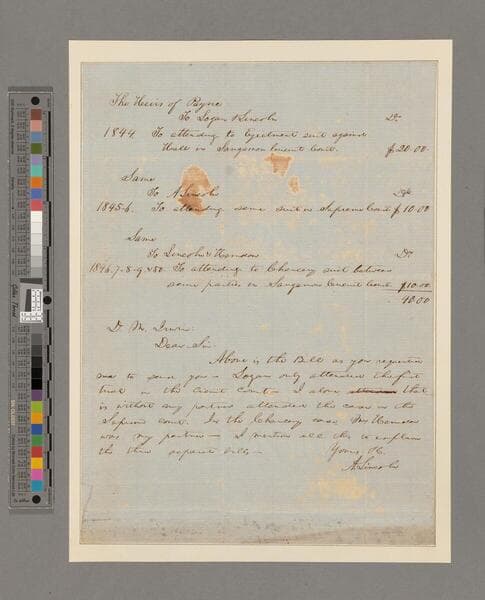 The Heirs of Payne
To Logan & Lincoln Dr.
1844. To attending to Ejectment suit against
Hall in Sangamon circuit court. $20.00
Same
To A Lincoln Dr.
1845-6. To attending same suit in Supreme Court $10.00
Same
To Lincoln & Herndon Dr.
1846.7-8-9 & 50 To attending to Chancery suit between
same parties in Sangamon Circuit Court $10.00
40.00
Dr. M. Irwin:
Dear Sir:
Above is the Bill as you requested
me to send you - Logan only attended the first
trial in the Circuit Court - I alone that
is without any partner attended the case in the
Supreme Court. In the Chancery case Mr Herndon
was my partner - I mention all this to explain
the three separate bills -
Yours &c.
A. Lincoln